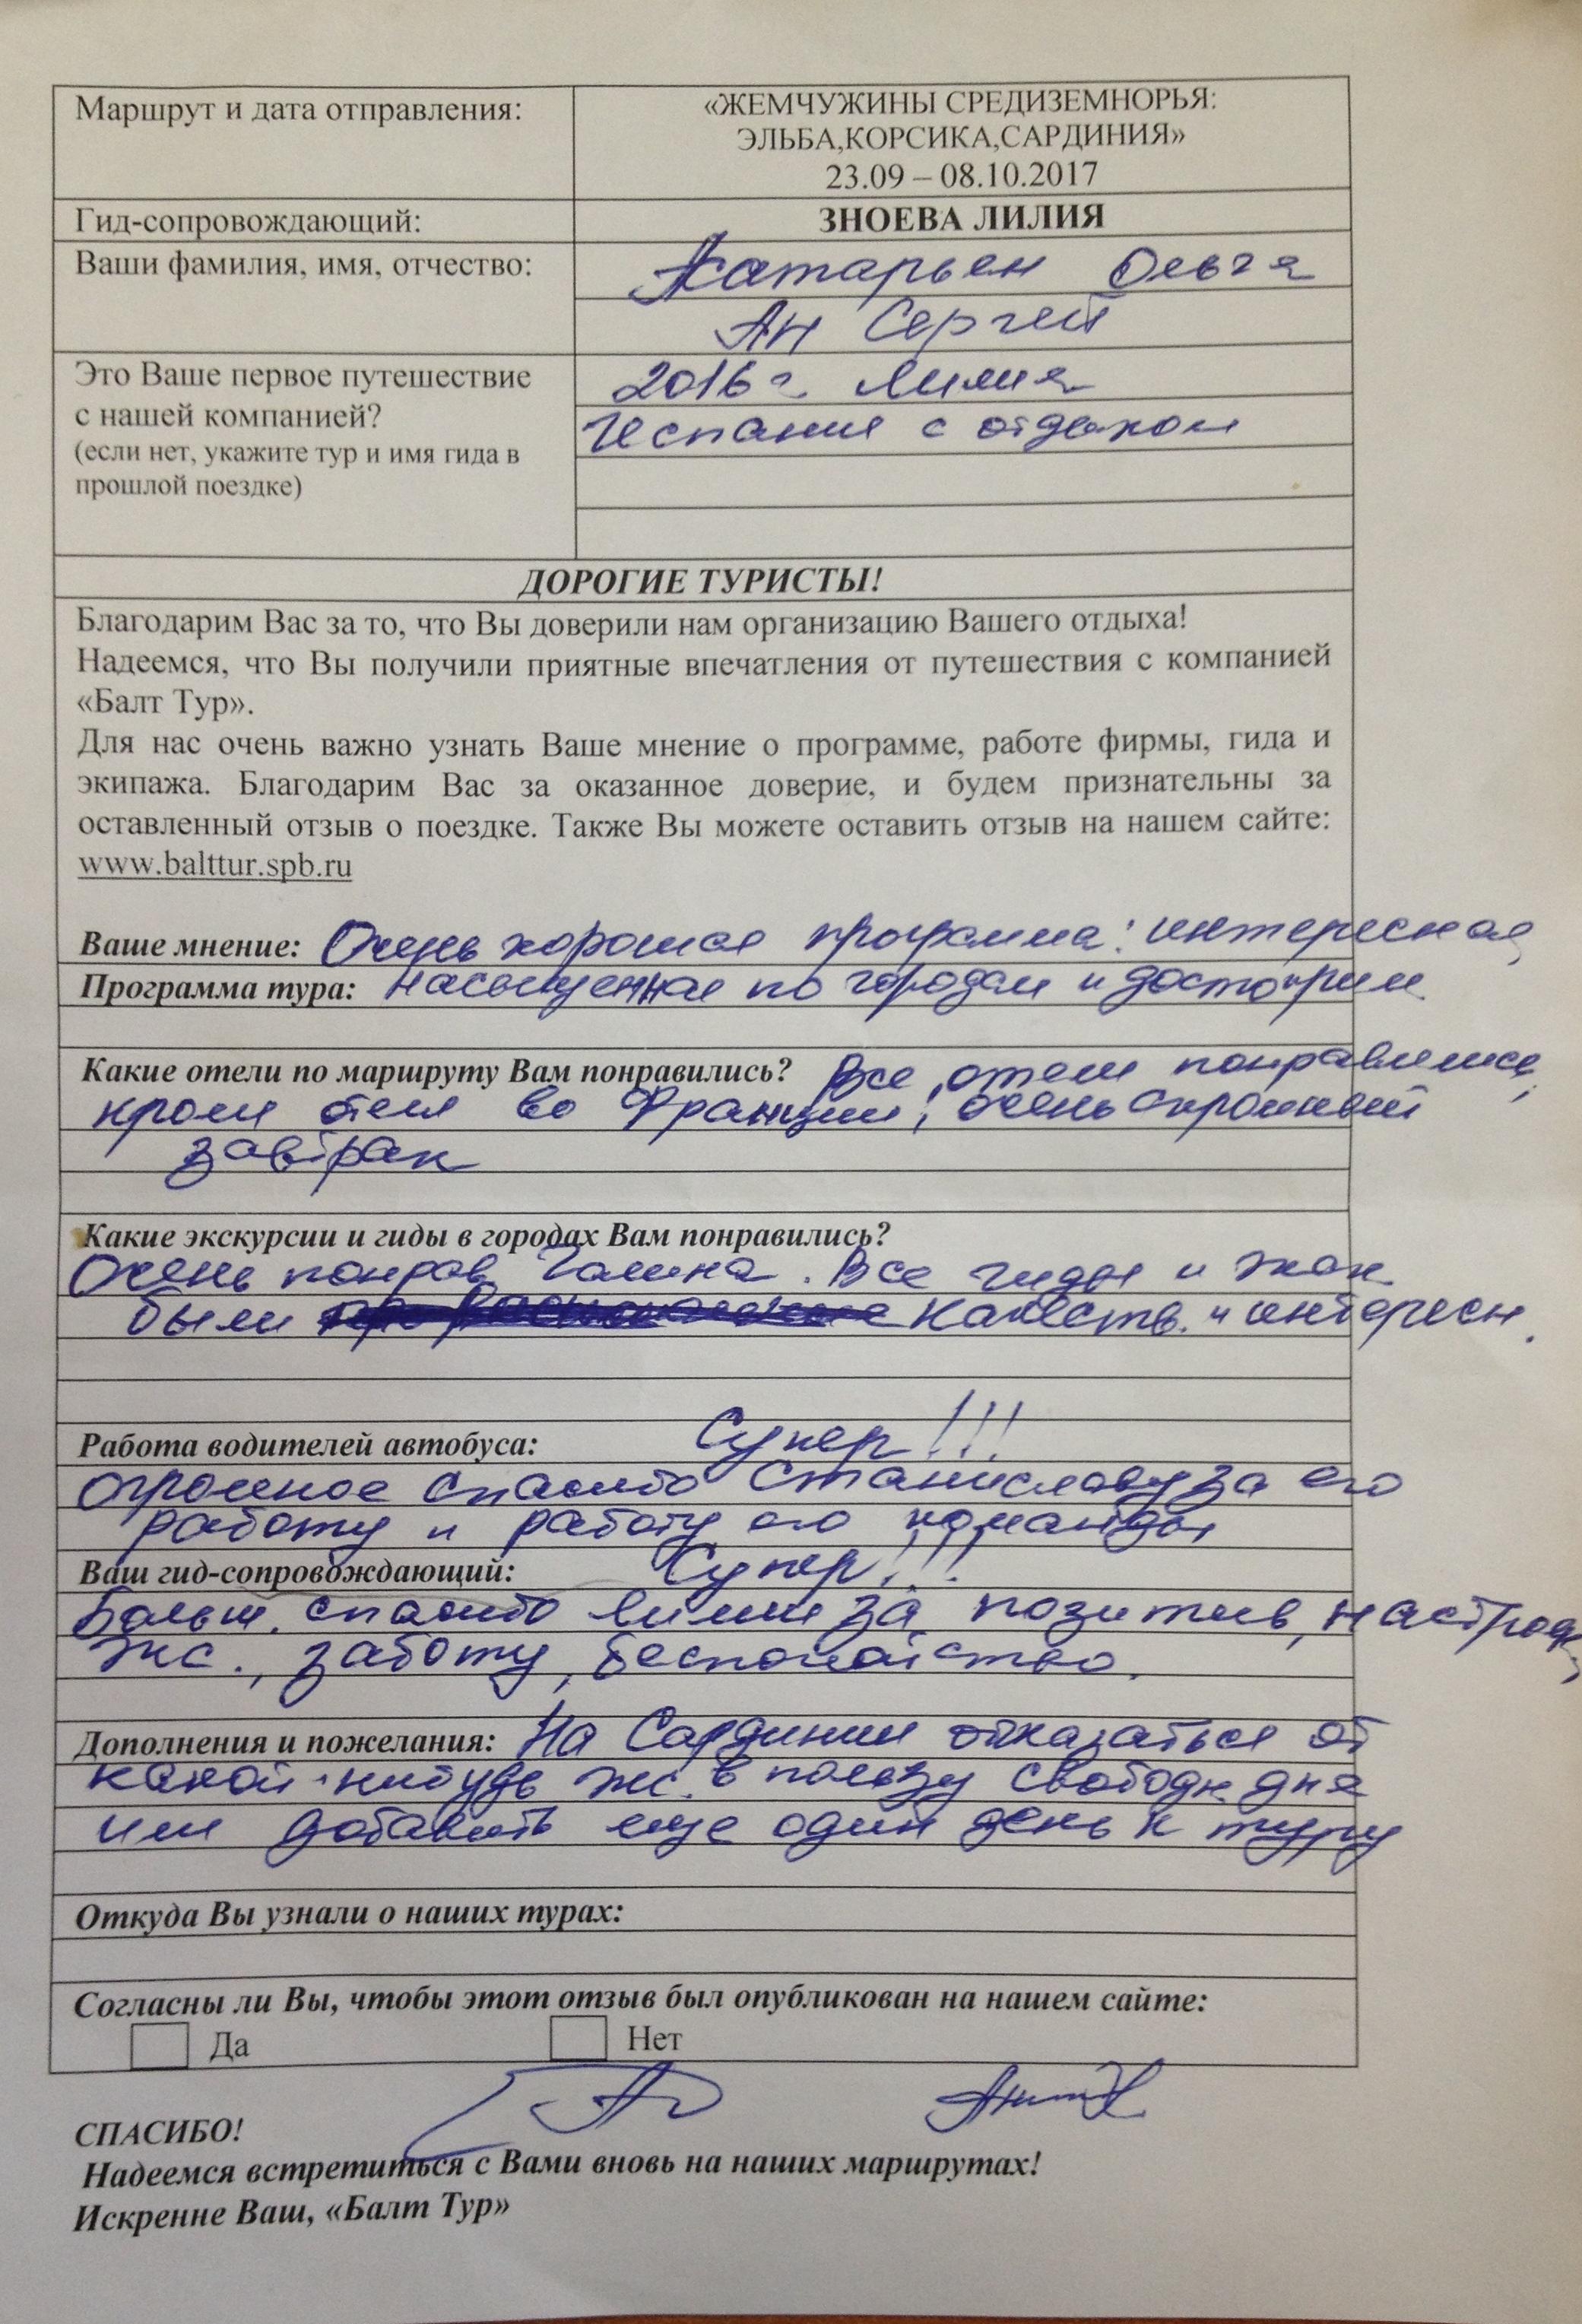 Маршрут и дата отправления:
«ЖЕМЧУЖИНЫ СРЕДИЗЕМНОРЬЯ:
ЭЛЬБА,КОРСИКА,САРДИНИЯ»
23.09 – 08.10.2017
Гид-сопровождающий:
ЗНОЕВА ЛИЛИЯ
Ваши фамилия, имя, отчество:
Ольга
Ан Сергей
Это Ваше первое путешествие
с нашей компанией?
(если нет, укажите тур и имя гида в
прошлой поездке)
2016 г. Лилия
Испания с отдыхом
ДОРОГИЕ ТУРИСТЫ!
Благодарим Вас за то, что Вы доверили нам организацию Вашего отдыха!
Надеемся, что Вы получили приятные впечатления от путешествия с компанией
«Балт Тур».
Для нас очень важно узнать Ваше мнение о программе, работе фирмы, гида и
экипажа. Благодарим Вас за оказанное доверие, и будем признательны за
оставленный отзыв о поездке. Также Вы можете оставить отзыв на нашем сайте:
www.balttur.spb.ru
Ваше мнение: Очень хорошая программа: интересная,
Программа тура: насыщенная по городам и достоприм.
Какие отели по маршруту Вам понравились? Все отели понравились,
кроме отеля во Франции; очень скромный
завтрак
Какие экскурсии и гиды в городах Вам понравились?
Очень понрав. Галина. Все гиды и экск.
были качеств. и интересн.
Работа водителей автобуса: Супер!!!
огромное спасибо Станиславу за его
работу и работу его команды
Ваш гид-сопровождающий: Супер!!!
Больш. спасибо Лилии за позитив, настрой,
экс., заботу, беспокойство.
Дополнения и пожелания: На Сардинии отказаться от
какой-нибудь экс. в пользу свободн. дня
или добавить еще один день к туру
Откуда Вы узнали о наших турах:
Согласны ли Вы, чтобы этот отзыв был опубликован на нашем сайте:
Да Нет
СПАСИБО!
Надеемся встретиться с Вами вновь на наших маршрутах!
Искренне Ваш, «Балт Тур»